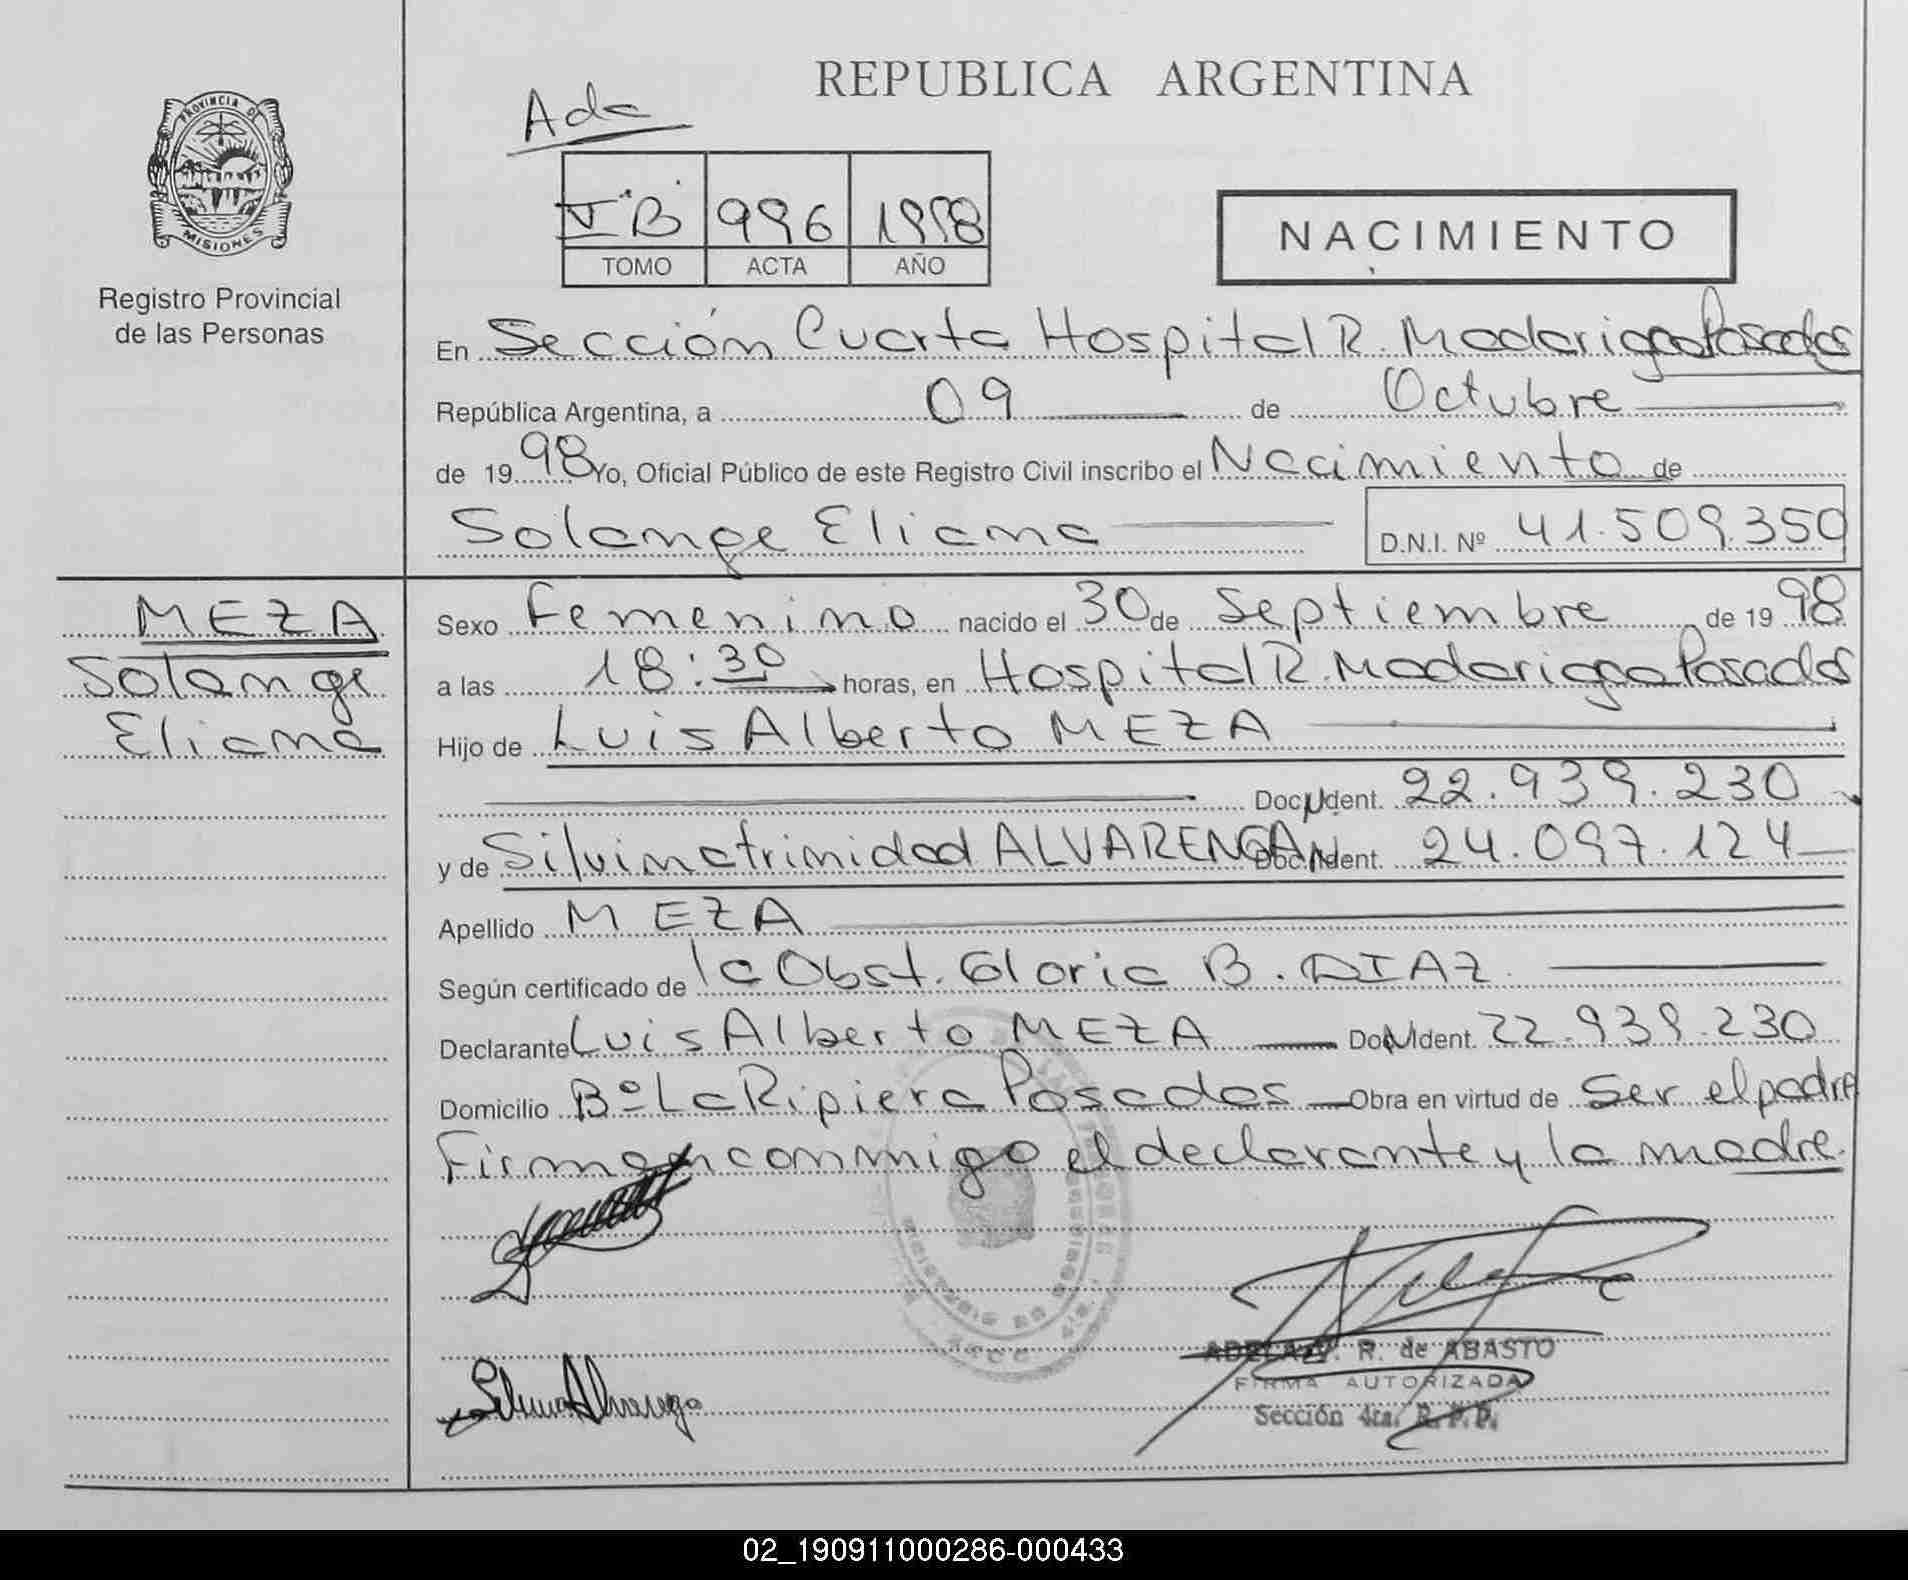 REPUBLICA ARGENTINA
PROVINCIA DE
MISIONES
Registro Provincial
de las Personas
Ada
V "B" 996 1998
TOMO ACTA AÑO
NACIMIENTO
En Sección Cuarta Hospital R. Madariaga Posadas
República Argentina, a 09 de Octubre
de 1998 Yo, Oficial Público de este Registro Civil inscribo el Nacimiento de
Solange Eliana D.N.I. Nº 41.509.350
MEZA
Solange
Eliana
Sexo Femenino nacido el 30 de Septiembre de 1998
a las 18:30 horas, en Hospital R. Madariaga Posadas
Hijo de Luis Alberto MEZA
Doc. Ident. 22.939.230
y de Silvina trinidad ALVARENGA Doc. Ident. 24.097.124
Apellido MEZA
Según certificado de la Obst. Gloria B. DIAZ
Declarante Luis Alberto MEZA Doc. Ident. 22.939.230
Domicilio Bº La Ripiera Posadas Obra en virtud de Ser el padre
Firman conmigo el declarante y la madre.
Silvina Alvarenga
ADELA V. R. de ABASTO
FIRMA AUTORIZADA
Sección 4ta. R. P. P.
02_190911000286-000433